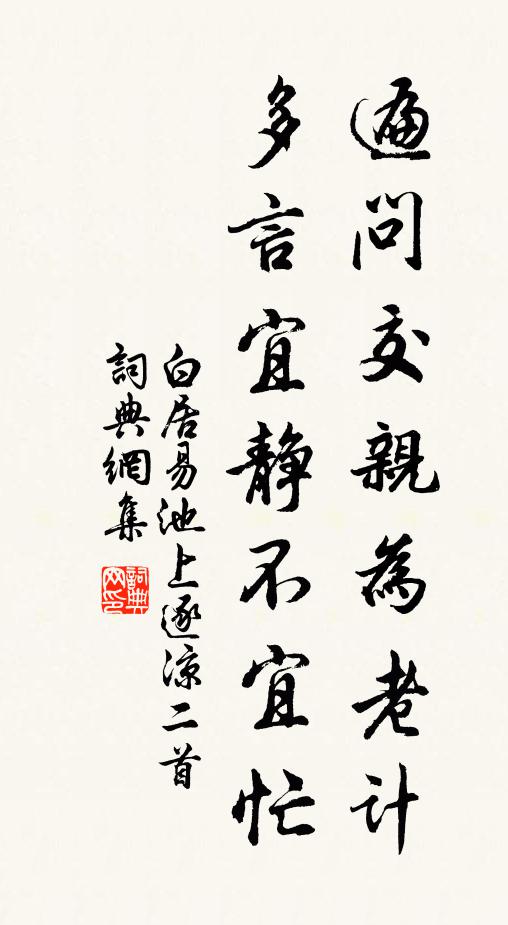 遍問交親為老計
多言宜靜不宜忙
白居易池上逐涼二首
詞典網集
詞典
網印